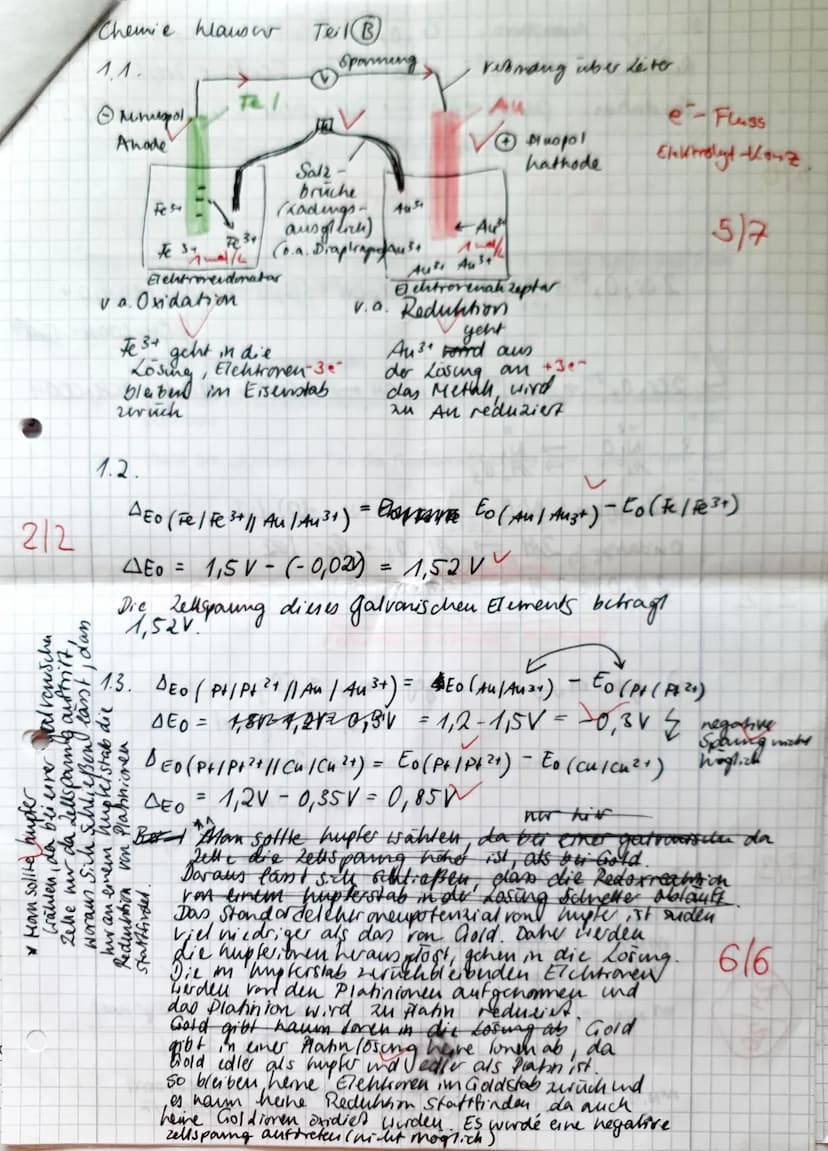 Chemie Klausur Teil B
1.1.
Spannung
V
Verbindung über Leiter
⊖ Minuspol
Anode
Fe
Au
⊕ Pluspol
Kathode
e⁻- Fluss
Elektrolyt-Konz.
5/7
Salz-
brücke
(Ladungs-
ausgleich)
(o.a. Diaphragma)
Fe³⁺
Fe³⁺
Fe³⁺
1 mol/L
Au³⁺
Au³⁺
Au³⁺
1 mol/L
Au³⁺ Au³⁺
Elektronendonator
Elektronenakzeptor
v.a. Oxidation
v.a. Reduktion
Fe³⁺ geht in die
Lösung, Elektronen -3e⁻
bleiben im Eisenstab
zurück
geht
Au³⁺ aus
der Lösung an +3e⁻
das Metall, wird
zu Au reduziert
1.2.
ΔE₀ (Fe/Fe³⁺//Au/Au³⁺) = E₀ (Au/Au³⁺) - E₀ (Fe/Fe³⁺)
2/2
ΔE₀ = 1,5V - (-0,02V) = 1,52V
Die Zellspannung dieses galvanischen Elements beträgt
1,52V.
1.3. ΔE₀ (Pt/Pt²⁺//Au/Au³⁺) = E₀ (Au/Au³⁺) - E₀ (Pt/Pt²⁺)
ΔE₀ = = 1,2 - 1,5V = -0,3V
negative
Spannung nicht
möglich
ΔE₀ (Pt/Pt²⁺//Cu/Cu²⁺) = E₀ (Pt/Pt²⁺) - E₀ (Cu/Cu²⁺)
ΔE₀ = 1,2V - 0,35V = 0,85V
nur hier
Man sollte Kupfer wählen, da bei einer galvanischen da
Zelle die Zellspannung höher ist, als bei Gold.
Daraus lässt sich schließen, dass die Redoxreaktion
von einem Kupferstab in der Lösung schneller abläuft.
Das Standardelektronenpotenzial von Kupfer ist zudem
viel niedriger als das von Gold. Daher werden
die Kupferionen herausgelöst, gehen in die Lösung.
Die im Kupferstab zurückbleibenden Elektronen
werden von den Platinionen aufgenommen und
das Platinion wird zu Platin reduziert.
Gold gibt kaum Ionen in die Lösung ab Gold
gibt in einer Platinlösung keine Ionen ab, da
Gold edler als Kupfer und edler als Platin ist.
So bleiben keine Elektronen im Goldstab zurück und
es kann keine Reduktion stattfinden da auch
keine Goldionen oxidiert werden. Es würde eine negative
Zellspannung auftreten (nicht möglich)
6/6
* Man sollte Kupfer
wählen, da bei einer galvanischen
Zelle nur da Zellspannung auftritt,
woraus sich schließen lässt, dass
nur an einem Kupferstab die
Reduktion von Platinionen
stattfindet.